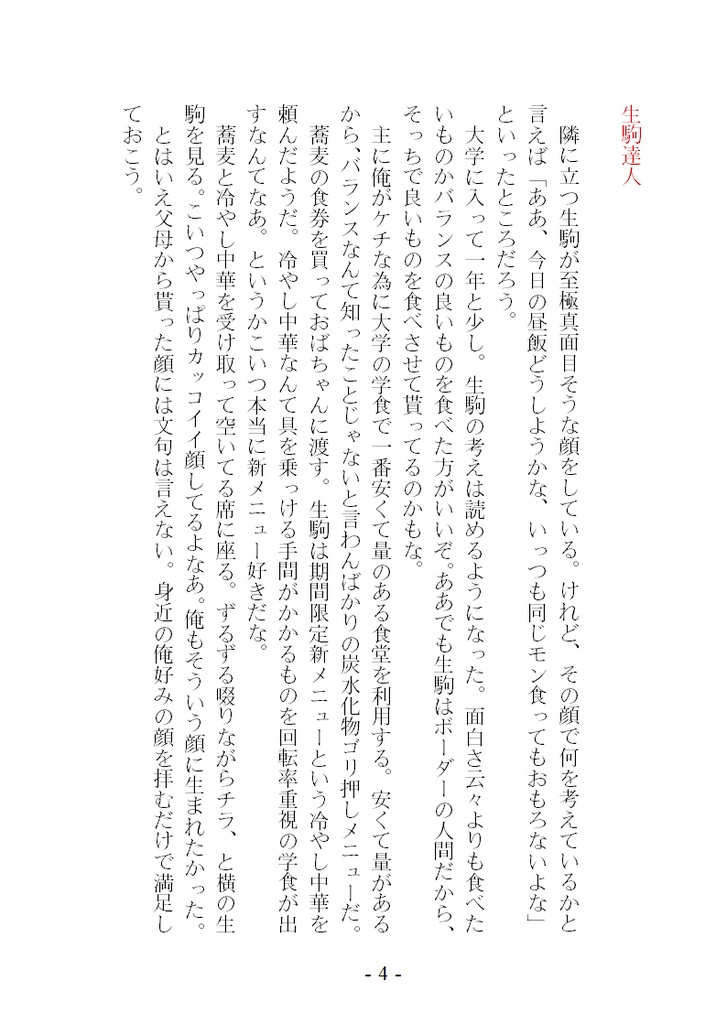 生駒達人
隣に立つ生駒が至極真面目そうな顔をしている。けれど、その顔で何を考えているかと
言えば「ああ、今日の昼飯どうしようかな、いっつも同じモン食ってもおもろないよな」
といったところだろう。
大学に入って一年と少し。生駒の考えは読めるようになった。面白さ云々よりも食べた
いものかバランスの良いものを食べた方がいいぞ。ああでも生駒はボーダーの人間だから、
そっちで良いものを食べさせて貰ってるのかもな。
主に俺がケチな為に大学の学食で一番安くて量のある食堂を利用する。安くて量がある
から、バランスなんて知ったことじゃないと言わんばかりの炭水化物ゴリ押しメニューだ。
蕎麦の食券を買っておばちゃんに渡す。生駒は期間限定新メニューという冷やし中華を
頼んだようだ。冷やし中華なんて具を乗っける手間がかかるものを回転率重視の学食が出
すなんてなあ。というかこいつ本当に新メニュー好きだな。
蕎麦と冷やし中華を受け取って空いてる席に座る。ずるずる啜りながらチラ、と横の生
駒を見る。こいつやっぱりカッコイイ顔してるよなあ。俺もそういう顔に生まれたかった。
とはいえ父母から貰った顔には文句は言えない。身近の俺好みの顔を拝むだけで満足し
ておこう。
- 4 -